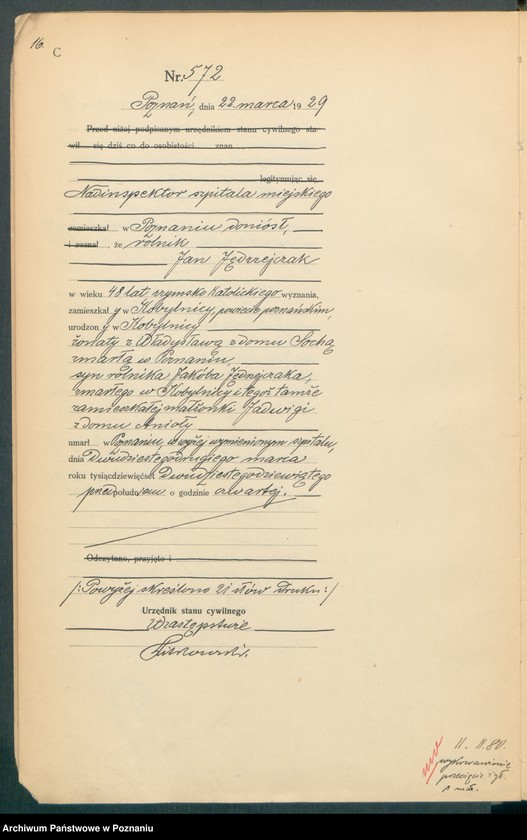 16.
C
Nr. 572
Poznań, dnia 22. marca 1929
Przed niżej podpisanym urzędnikiem stanu cywilnego sta-
wił się dziś co do osobistości znan
legitymując się
Nadinspektor szpitala miejskiego
zamieszkał w Poznaniu doniósł,
i zeznał, że rolnik
Jan Jędrzejczak
w wieku 48 lat rzymsko katolickiego wyznania,
zamieszkały w Kobylnicy, powiecie poznańskim,
urodzony w Kobylnicy
żonaty z Władysławą z domu Sochą
zmarłą w Poznaniu,
syn rolnika Jakóba Jędrzejczaka,
zmarłego w Kobylnicy i tegoż tamże
zamieszkałej małżonki Jadwigi
z domu Anioły
umarł w Poznaniu, w wyżej wymienionym szpitalu,
dnia Dwudziestegodrugiego marca
roku tysiącdziewięćset Dwudziestegodziewiątego
przedpołudniem o godzinie czwartej.
Odczytano, przyjęto i
/: Powyżej skreślono 21 słów druku :/
Urzędnik stanu cywilnego
W zastępstwie
11. 11. 80.
1 mał.
Archiwum Państwowe w Poznaniu